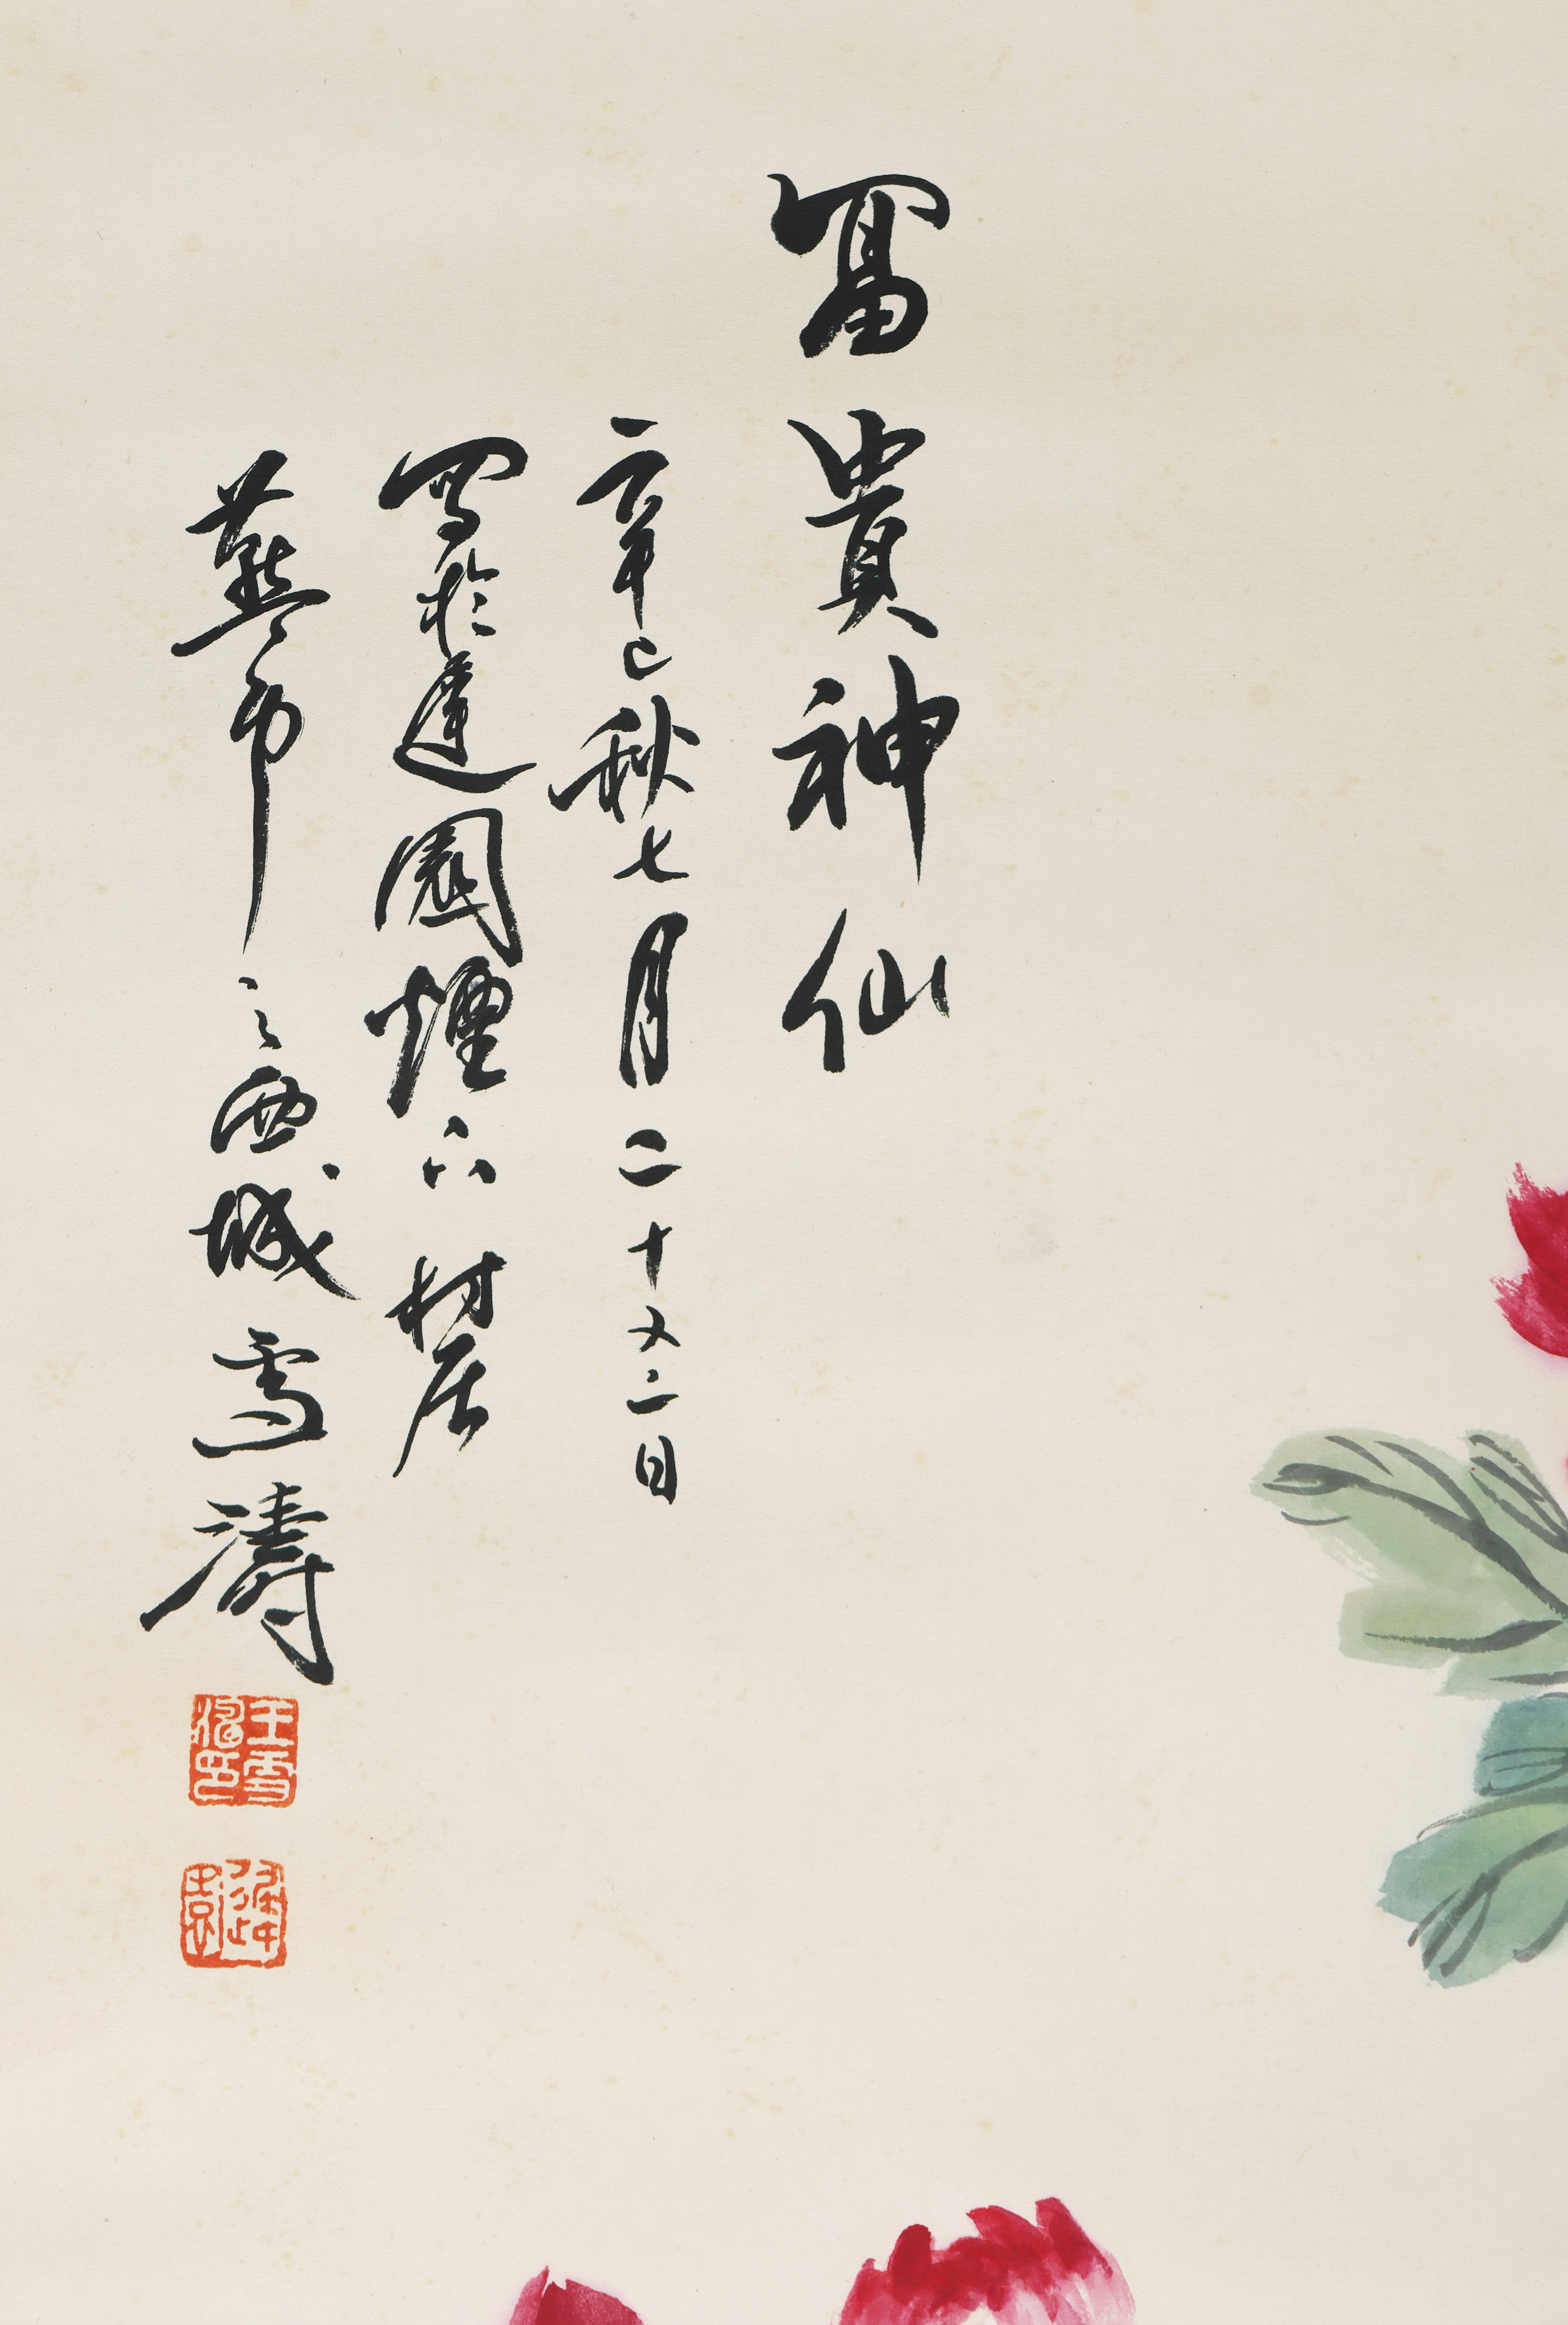 冨貴神仙
辛巳秋七月二十又二日
寫於遲園煙六村居
燕市之西城雪濤
王雪濤印
遲園